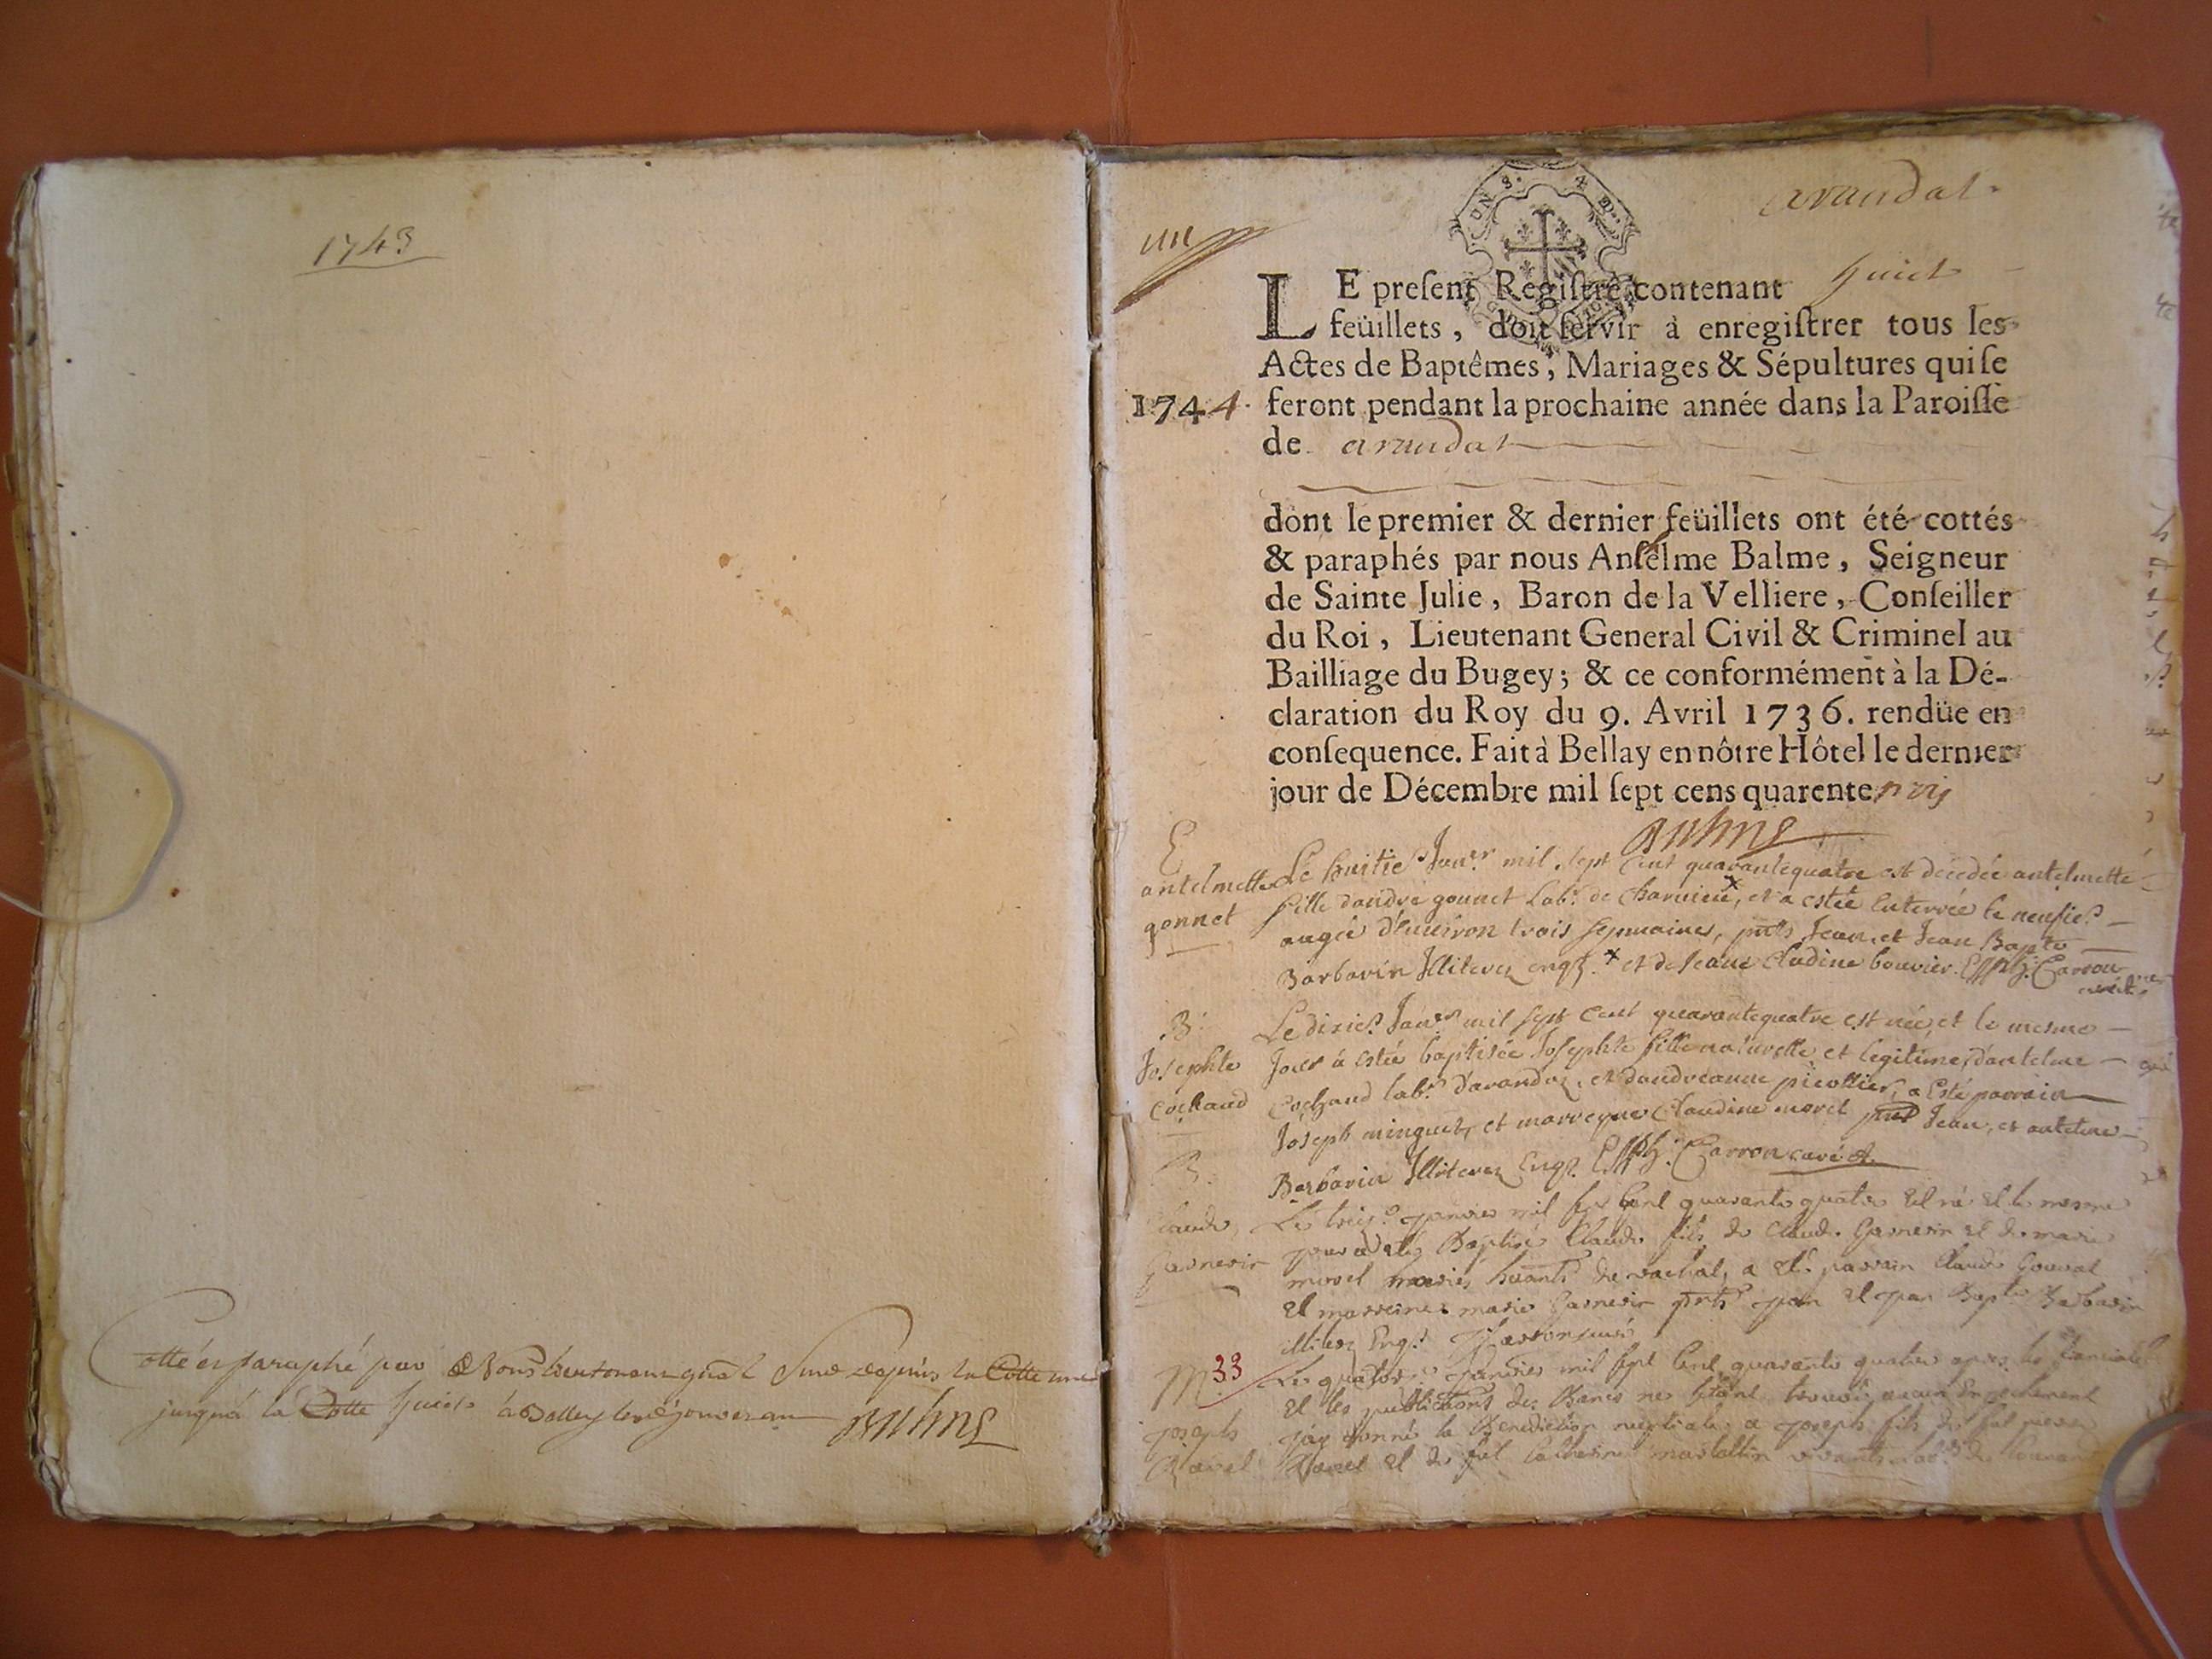 1743
Cotté et paraphé par Nous Lieutenant gñal depuis la Cotte une
jusqu'à la Cotte huict à Belley
Balme
un
arandat
UN S. 4 D.
LE preſent Regiſtre contenant huict
feüillets, doit ſervir à enregiſtrer tous les
Actes de Baptêmes, Mariages & Sépultures qui ſe
1744. feront pendant la prochaine année dans la Paroiſſe
de arandat
dont le premier & dernier feüillets ont été cottés
& paraphés par nous Anſelme Balme, Seigneur
de Sainte Julie, Baron de la Velliere, Conſeiller
du Roi, Lieutenant General Civil & Criminel au
Bailliage du Bugey; & ce conformément à la Dé-
claration du Roy du 9. Avril 1736. rendüe en
conſequence. Fait à Bellay en nôtre Hôtel le dernier
jour de Décembre mil ſept cens quarente trois
Balme
E
antelmette gonnet
Le huitie? Janer mil sept cent quarantequatre est décédée antelmette
fille dandré gonnet Labr de Charvieu, et a estée enterrée le neufie?
augée d'environ trois sepmaines, pnts Jean, et Jean Bapte
Barbarin Illiterez enqs. x et de Jeane Cladine bouvier. Carron
curé
B.
Josephte Cochaud
Le dixie? Janer mil sept cent quarantequatre est née, et le mesme
Jour à estée baptisée Josephte fille naturelle et legitime, d'antelme
Cochaud labr d'arandaz, et dandreanne picollier, a Esté parrain
Joseph minguet, et marreyne Claudine morel pnts Jean, et antelme
Barbarin Illiterez Enqs. Carron curé
B.
Claude Garnerin
Le treiz? Janvier mil sep Cent quarante quatre Est né Et le mesme
jour a etez Baptise Claude fils de Claude Garnerin et de marie
morel mariés de rachat, a Eté parrain Claude Gouval
Et marreine marie Garnerin pnts jean Et jean Bapte Barbarin
illiterez Enqs. Carron curé
M. 33
joseph Ravel
Le quatorz? Janvier mil sept Cent quarante quatre apres les
Et les publications des Bancs ne sétant trouvé aucun Empechement
jay donné la Benediction nuptiale a joseph fils de
Ravel Et de Catherine